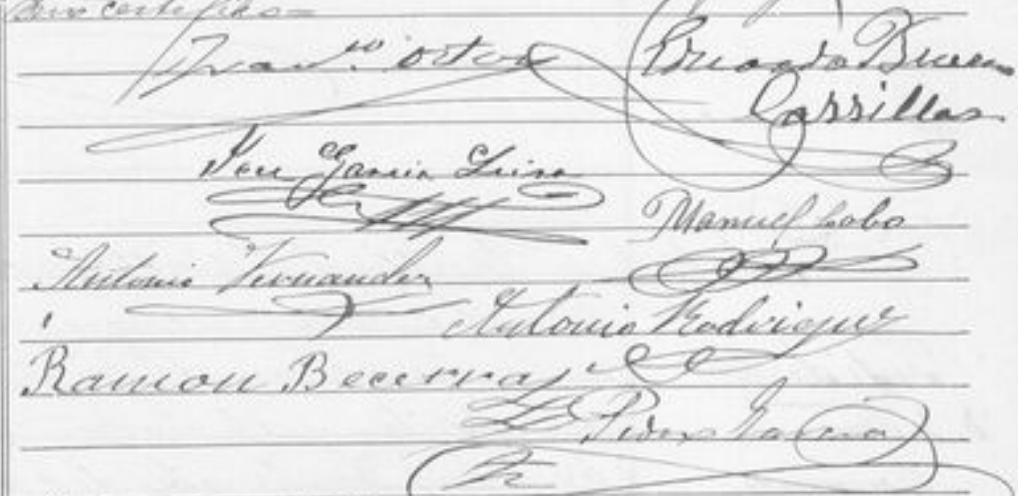 certifico=
Eduardo Bueno
Carrillas
Jose Garcia
Manuel Cobo
Antonio Fernandez
Antonio Rodriguez
Ramon Becerra
Pedro Garcia